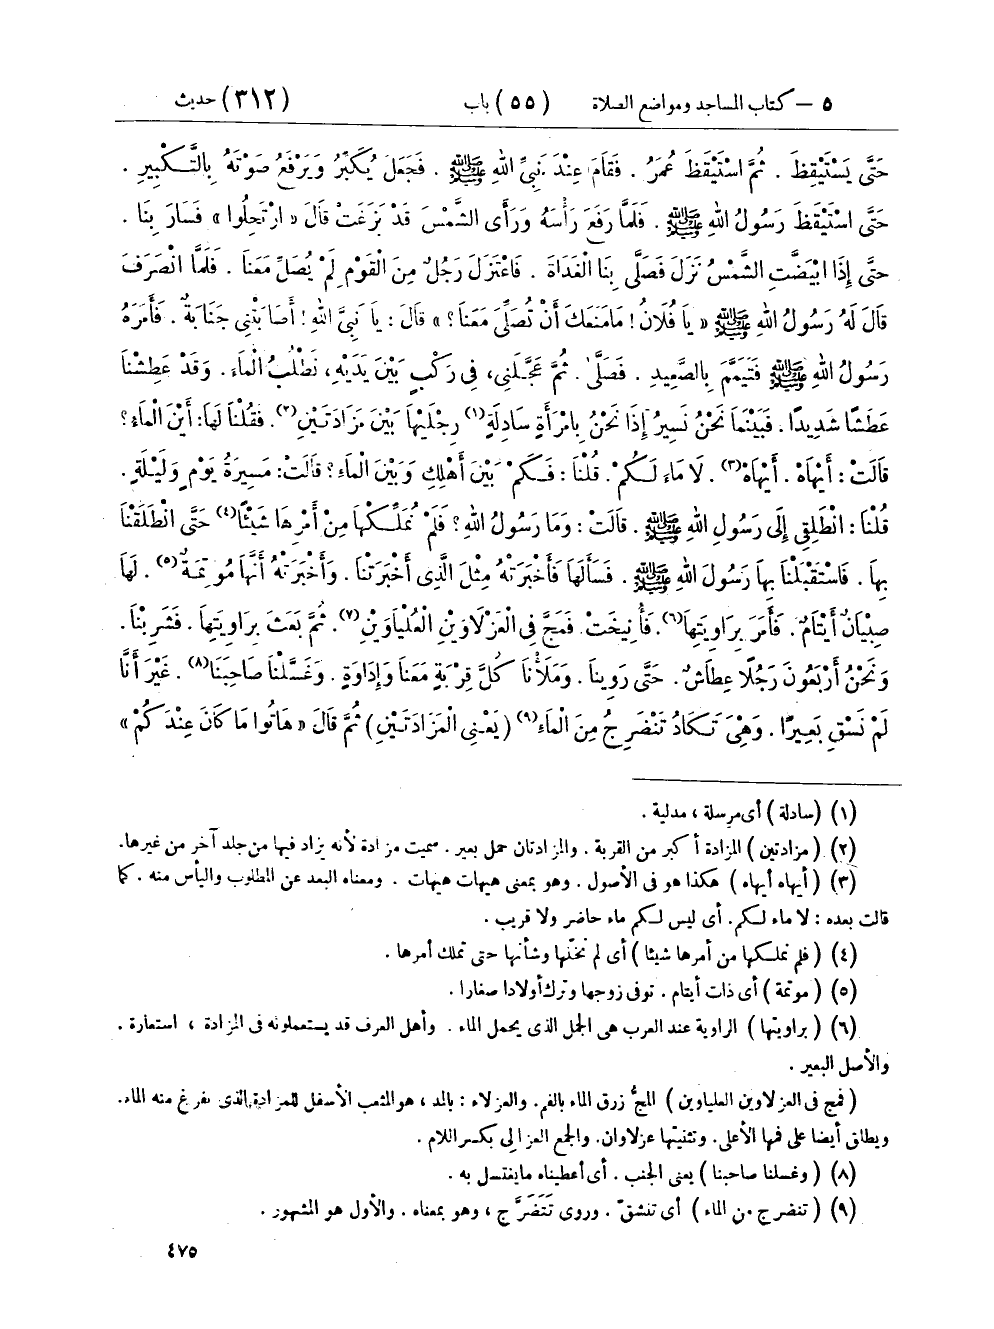 ٥ – كتاب المساجد ومواضع الصلاة (٥٥) باب (٣١٢) حديث
حَتَّى يَسْتَيْقِظَ . ثُمَّ اسْتَيْقَظَ عُمَرُ . فَقَامَ عِنْدَ نَبِيِّ اللهِ ﷺ . فَجَعَلَ يُكَبِّرُ وَيَرْفَعُ صَوْتَهُ بِالتَّكْبِيرِ .
حَتَّى اسْتَيْقَظَ رَسُولُ اللهِ ﷺ . فَلَمَّا رَفَعَ رَأْسَهُ وَرَأَى الشَّمْسَ قَدْ بَزَغَتْ قَالَ « ارْتَحِلُوا » فَسَارَ بِنَا .
حَتَّى إِذَا ابْيَضَّتِ الشَّمْسُ نَزَلَ فَصَلَّى بِنَا الْغَدَاةَ . فَاعْتَزَلَ رَجُلٌ مِنَ الْقَوْمِ لَمْ يُصَلِّ مَعَنَا . فَلَمَّا انْصَرَفَ
قَالَ لَهُ رَسُولُ اللهِ ﷺ « يَا فُلَانُ ! مَا مَنَعَكَ أَنْ تُصَلِّيَ مَعَنَا ؟ » قَالَ : يَا نَبِيَّ اللهِ ! أَصَابَتْنِي جَنَابَةٌ . فَأَمَرَهُ
رَسُولُ اللهِ ﷺ فَتَيَمَّمَ بِالصَّعِيدِ . فَصَلَّى . ثُمَّ عَجَّلَنِي، فِي رَكْبٍ بَيْنَ يَدَيْهِ، نَطْلُبُ الْمَاءَ . وَقَدْ عَطِشْنَا
عَطَشًا شَدِيدًا . فَبَيْنَمَا نَحْنُ نَسِيرُ إِذَا نَحْنُ بِامْرَأَةٍ سَادِلَةٍ(١) رِجْلَيْهَا بَيْنَ مَزَادَتَيْنِ(٢). فَقُلْنَا لَهَا: أَيْنَ الْمَاءُ ؟
قَالَتْ : أَيْهَاهْ . أَيْهَاهْ(٣). لَا مَاءَ لَكُمْ . قُلْنَا : فَكَمْ بَيْنَ أَهْلِكِ وَبَيْنَ الْمَاءِ ؟ قَالَتْ: مَسِيرَةُ يَوْمٍ وَلَيْلَةٍ .
قُلْنَا : انْطَلِقِي إِلَى رَسُولِ اللهِ ﷺ . قَالَتْ : وَمَا رَسُولُ اللهِ ؟ فَلَمْ نُمَلِّكْهَا مِنْ أَمْرِهَا شَيْئًا(٤) حَتَّى انْطَلَقْنَا
بِهَا . فَاسْتَقْبَلْنَا بِهَا رَسُولَ اللهِ ﷺ . فَسَأَلَهَا فَأَخْبَرَتْهُ مِثْلَ الَّذِي أَخْبَرَتْنَا . وَأَخْبَرَتْهُ أَنَّهَا مُوتِمَةٌ(٥) . لَهَا
صِبْيَانٌ أَيْتَامٌ . فَأَمَرَ بِرَاوِيَتِهَا(٦). فَأُنِيخَتْ. فَمَجَّ فِي الْعَزْلَاوَيْنِ الْعُلْيَاوَيْنِ(٧). ثُمَّ بَعَثَ بِرَاوِيَتِهَا . فَشَرِبْنَا .
وَنَحْنُ أَرْبَعُونَ رَجُلًا عِطَاشٌ . حَتَّى رَوِينَا . وَمَلَأْنَا كُلَّ قِرْبَةٍ مَعَنَا وَإِدَاوَةٍ . وَغَسَّلْنَا صَاحِبَنَا(٨) . غَيْرَ أَنَّا
لَمْ نَسْقِ بَعِيرًا . وَهِيَ تَكَادُ تَنْضَرِجُ مِنَ الْمَاءِ(٩) ( يَعْنِي الْمَزَادَتَيْنِ ) ثُمَّ قَالَ « هَاتُوا مَا كَانَ عِنْدَكُمْ »
(١) ( سادلة ) أى مرسلة ، مدلية .
(٢) ( مزادتين ) المزادة أكبر من القربة . والمزادتان حمل بعير . سميت مزادة لأنه يزاد فيها من جلد آخر من غيرها.
(٣) ( أيهاه أيهاه ) هكذا هو فى الأصول . وهو بمعنى هيهات هيهات . ومعناه البعد عن المطلوب واليأس منه . كما
قالت بعده : لا ماء لكم. أى ليس لكم ماء حاضر ولا قريب .
(٤) ( فلم نملكها من أمرها شيئا ) أى لم نخلّها وشأنها حتى تملك أمرها .
(٥) ( موتمة ) أى ذات أيتام . توفى زوجها وترك أولادا صغارا .
(٦) ( براويتها ) الراوية عند العرب هى الجمل الذى يحمل الماء . وأهل العرف قد يستعملونه فى المزادة ، استعارة .
والأصل البعير .
( فمج فى العزلاوين العلياوين ) المجّ زرق الماء بالفم. والعزلاء : بالمد ، هو المثعب الأسفل للمزادة الذى يفرغ منه الماء.
ويطلق أيضا على فمها الأعلى. وتثنيتها عزلاوان. والجمع العزالِى بكسر اللام .
(٨) ( وغسلنا صاحبنا ) يعنى الجنب . أى أعطيناه ما يغتسل به .
(٩) ( تنضرج من الماء ) أى تنشقّ . وروى تَتَضَرَّج ، وهو بمعناه . والأول هو المشهور .
٤٧٥